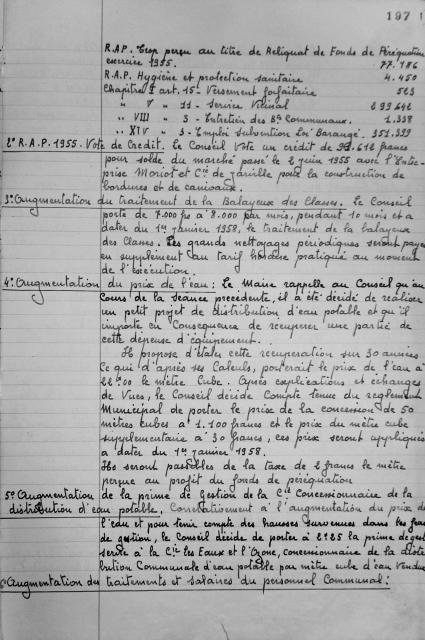 197
R.A.P. Trop perçu au titre de Reliquat de Fonds de Péréquation
exercice 1955. 77.786
R.A.P. Hygiène et protection sanitaire 4.450
Chapitre I art. 15 - Versement forfaitaire 523
" V " 11 - Service Vicinal 293.642
" VIII " 3 - Entretien des Bts Communaux. 1.338
" XIV " 3 - Emploi Subvention Loi Barangé. 351.339
2° R.A.P. 1955. Vote de Crédit. Le Conseil Vote un crédit de 612 francs
pour solde du marché passé le 2 juin 1955 avec l'Entre-
prise Moriot et Cie de Jarville pour la construction de
bordures et de caniveaux.
3° Augmentation du traitement de la Balayeuse des Classes. Le Conseil
porte de 7.000 frs à 8.000 par mois, pendant 10 mois et à
dater du 1er janvier 1958, le traitement de la balayeuse
de Classes. Les grands nettoyages périodiques seront payés
en supplément au tarif horaire pratiqué au moment
de l'exécution.
4° Augmentation du prix de l'eau : Le Maire rappelle au Conseil qu'au
Cours de la séance précédente, il a été décidé de réaliser
un petit projet de distribution d'eau potable et qu'il
importe en Conséquence de récupérer une partie de
cette dépense d'équipement.
Il propose d'étaler cette récupération sur 30 années
Ce qui d'après ses Calculs, porterait le prix de l'eau à
22F00 le mètre Cube. Après explications et échanges
de Vues, le Conseil décide Compte tenue du règlement
Municipal de porter le prix de la concession de 50
mètres cubes à 1.100 francs et le prix du mètre cube
supplémentaire à 30 francs, ces prix seront appliqués
à dater du 1er Janvier 1958.
Ils seront passibles de la taxe de 2 francs le mètre
perçue au profit du fonds de péréquation
5° Augmentation de la prime de Gestion de la Cie Concessionnaire de la
distribution d'eau potable. Corrélativement à l'augmentation du prix de
l'eau et pour tenir compte des hausses survenues dans les frais
de gestion, le Conseil décide de porter à 2F25 la prime de gest
servie à la Cie les Eaux et l'Ozone, concessionnaire de la distri
bution Communale d'eau potable par mètre cube d'eau vendue
6° Augmentation des traitements et salaires du personnel Communal :